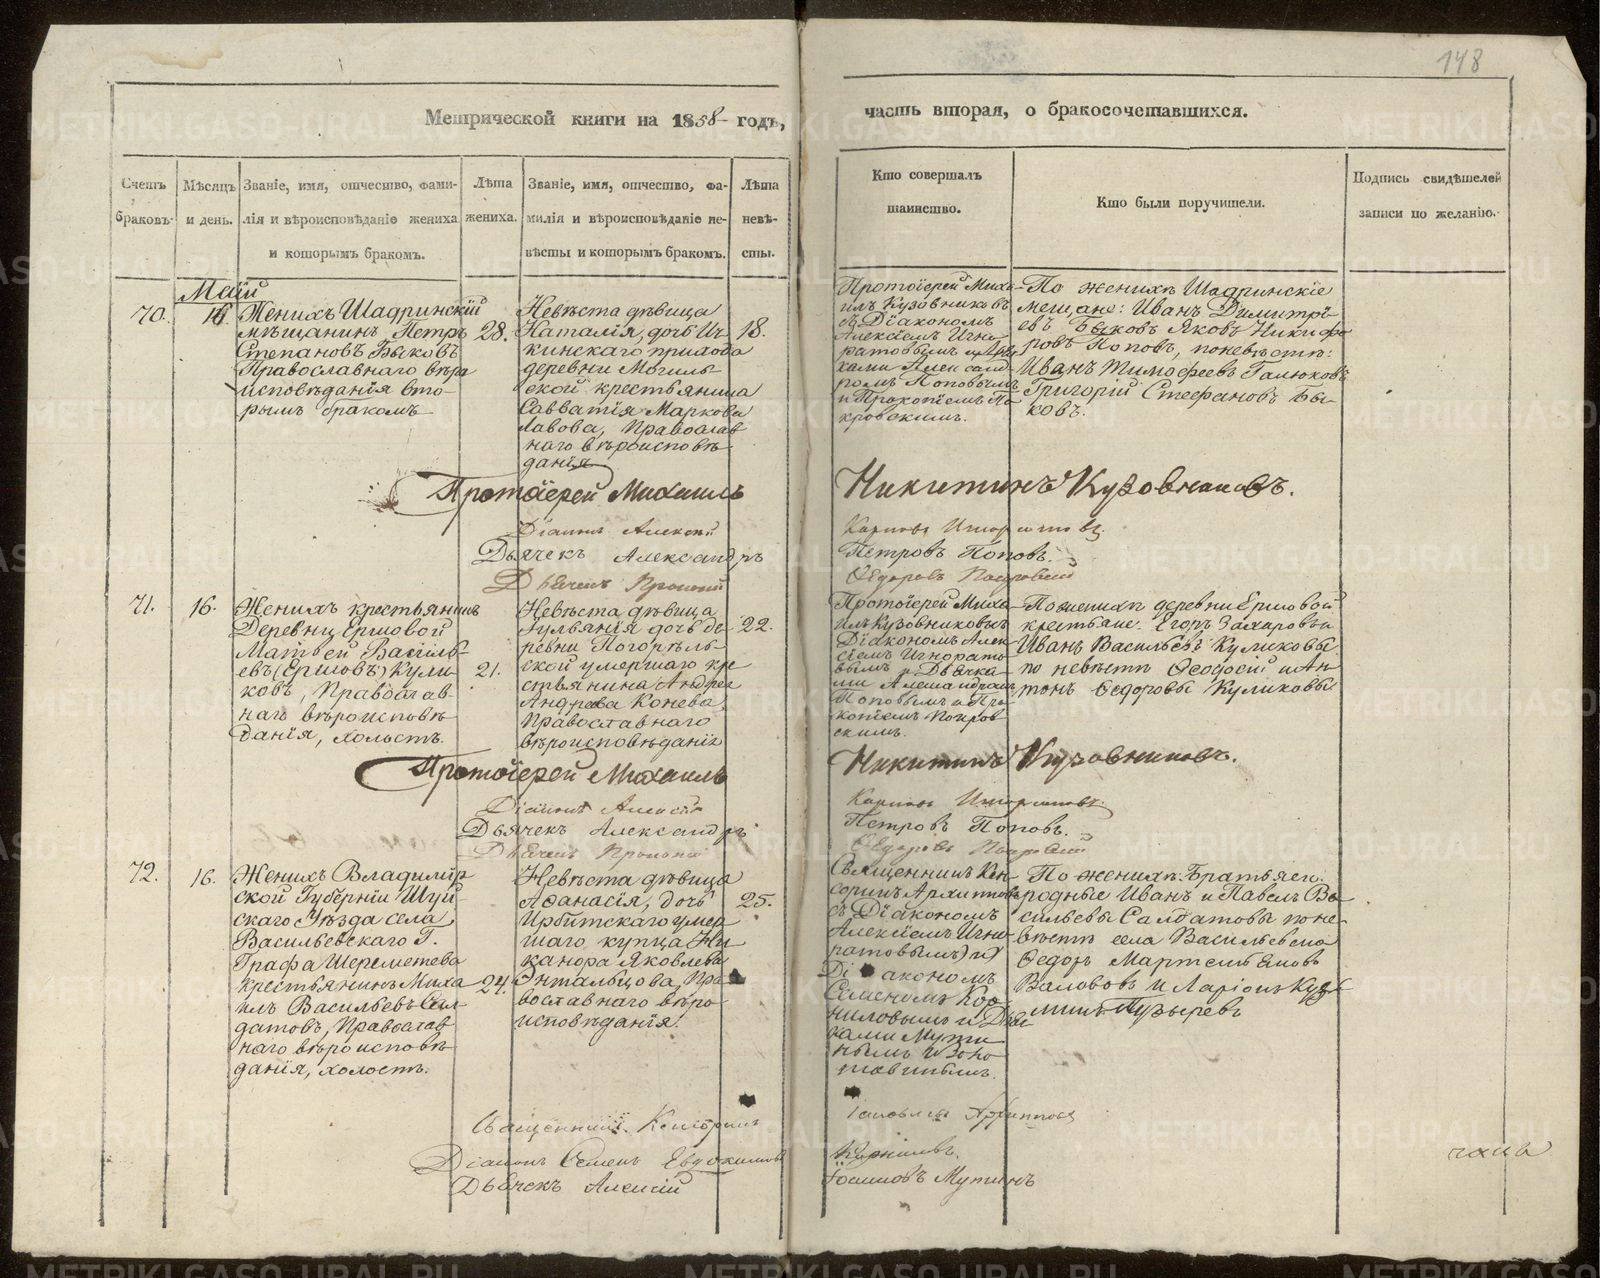 148
Метрической книги на 1858 годъ,
часть вторая, о бракосочетавшихся.
Счетъ браковъ.
Мѣсяцъ и день.
Званіе, имя, отчество, фамилія и вѣроисповѣданіе жениха и которымъ бракомъ.
Лѣта жениха.
Званіе, имя, отчество, фамилія и вѣроисповѣданіе невѣсты и которымъ бракомъ.
Лѣта невѣсты.
Кто совершалъ таинство.
Кто были поручители.
Подпись свидѣтелей записи по желанію.
Маій
70.
Женихъ Шадринскій
мѣщанинъ Петръ
Степановъ Быковъ
Православнаго вѣро
исповѣданія вто-
рымъ бракомъ
28.
Невѣста дѣвица
Наталія, дочь Ич-
кинскаго прихода
деревни Могиль
ской крестьянина
Савватія Маркова
Лавова, Православ
наго вѣроисповѣ
данія
18.
Протоіерей Миха-
илъ Кузовниковъ
съ Діакономъ
Алексіемъ Игно
ратовымъ и Дьяч
ками Александ
ромъ Поповымъ
и Прокопіемъ По
кровскимъ.
По женихѣ Шадринскіе
мещане: Иванъ Димитрі-
евъ Быковъ Яковъ Никифо
ровъ Поповъ, поневѣстѣ:
Иванъ Тимофеевъ Галюковъ
Григорій Стефановъ Бы-
ковъ.
Протоіерей Михаилъ Никитинъ Кузовниковъ.
Діаконъ Алексій Карповъ
Дьячекъ Александръ Петровъ Поповъ.
Дьячекъ Прокопій Ѳедоровъ Покровскій
71.
16.
Женихъ крестьянинъ
Деревни Ершовой
Матвей Василь-
евъ (Ершовъ) Кули-
ковъ, Православ-
наго вѣроисповѣ
данія, холостъ.
21.
Невѣста дѣвица
Іульянія дочь де-
ревни Погорѣль-
ской умершаго кре
стьянина Андрея
Андреева Конева,
Православнаго
вѣроисповѣданія
22.
Протоіерей Миха-
илъ Кузовниковъ
Діакономъ Алек-
сіемъ Игнорато-
вымъ и Дьячка-
ми Александромъ
Поповымъ и Про
копіемъ Покров
скимъ.
По женихѣ деревни Ершовой
крестьяне: Егоръ Захаровъ и
Иванъ Васильевъ Куликовы
по невѣстѣ Ѳеодосій и Ан-
тонъ Ѳедоровы Куликовы
Протоіерей Михаилъ Никитинъ Кузовниковъ.
Діаконъ Алексій Карповъ
Дьячекъ Александръ Петровъ Поповъ.
Дьячекъ Прокопій Ѳедоровъ Покровскій
72.
16.
Женихъ Владимір
ской Губерніи Шуй-
скаго Уѣзда села
Васильевскаго Г.
Графа Шереметева
крестьянинъ Миха
илъ Васильевъ Сал-
датовъ, Православ
наго вѣроисповѣ
данія, холостъ.
24.
Невѣста дѣвица
Аѳанасія, дочь
Ирбитскаго умер
шаго купца Ни
канора Яковлева
Энтальцова, Пра
вославнаго вѣро
исповѣданія.
25.
Священникъ Кен-
соринъ Архиповъ
съ Діакономъ
Алексіемъ Игно
ратовымъ) и)
Ді акономъ
Семеномъ Кор
ниловымъ и Дьяч
ками Мути
нымъ и
По женихѣ: Братья ег.
родные Иванъ и Павелъ Ва-
сильевы Салдатовы поне
вѣстѣ села Васильевско
Ѳедоръ Мартемьяновъ
Валововъ и Ларіонъ Кузь
минъ Пузыревъ
Священникъ Кенсоринъ
Діаконъ Семенъ Евдокимовъ Корниловъ.
Дьячекъ Алексій Мутинъ